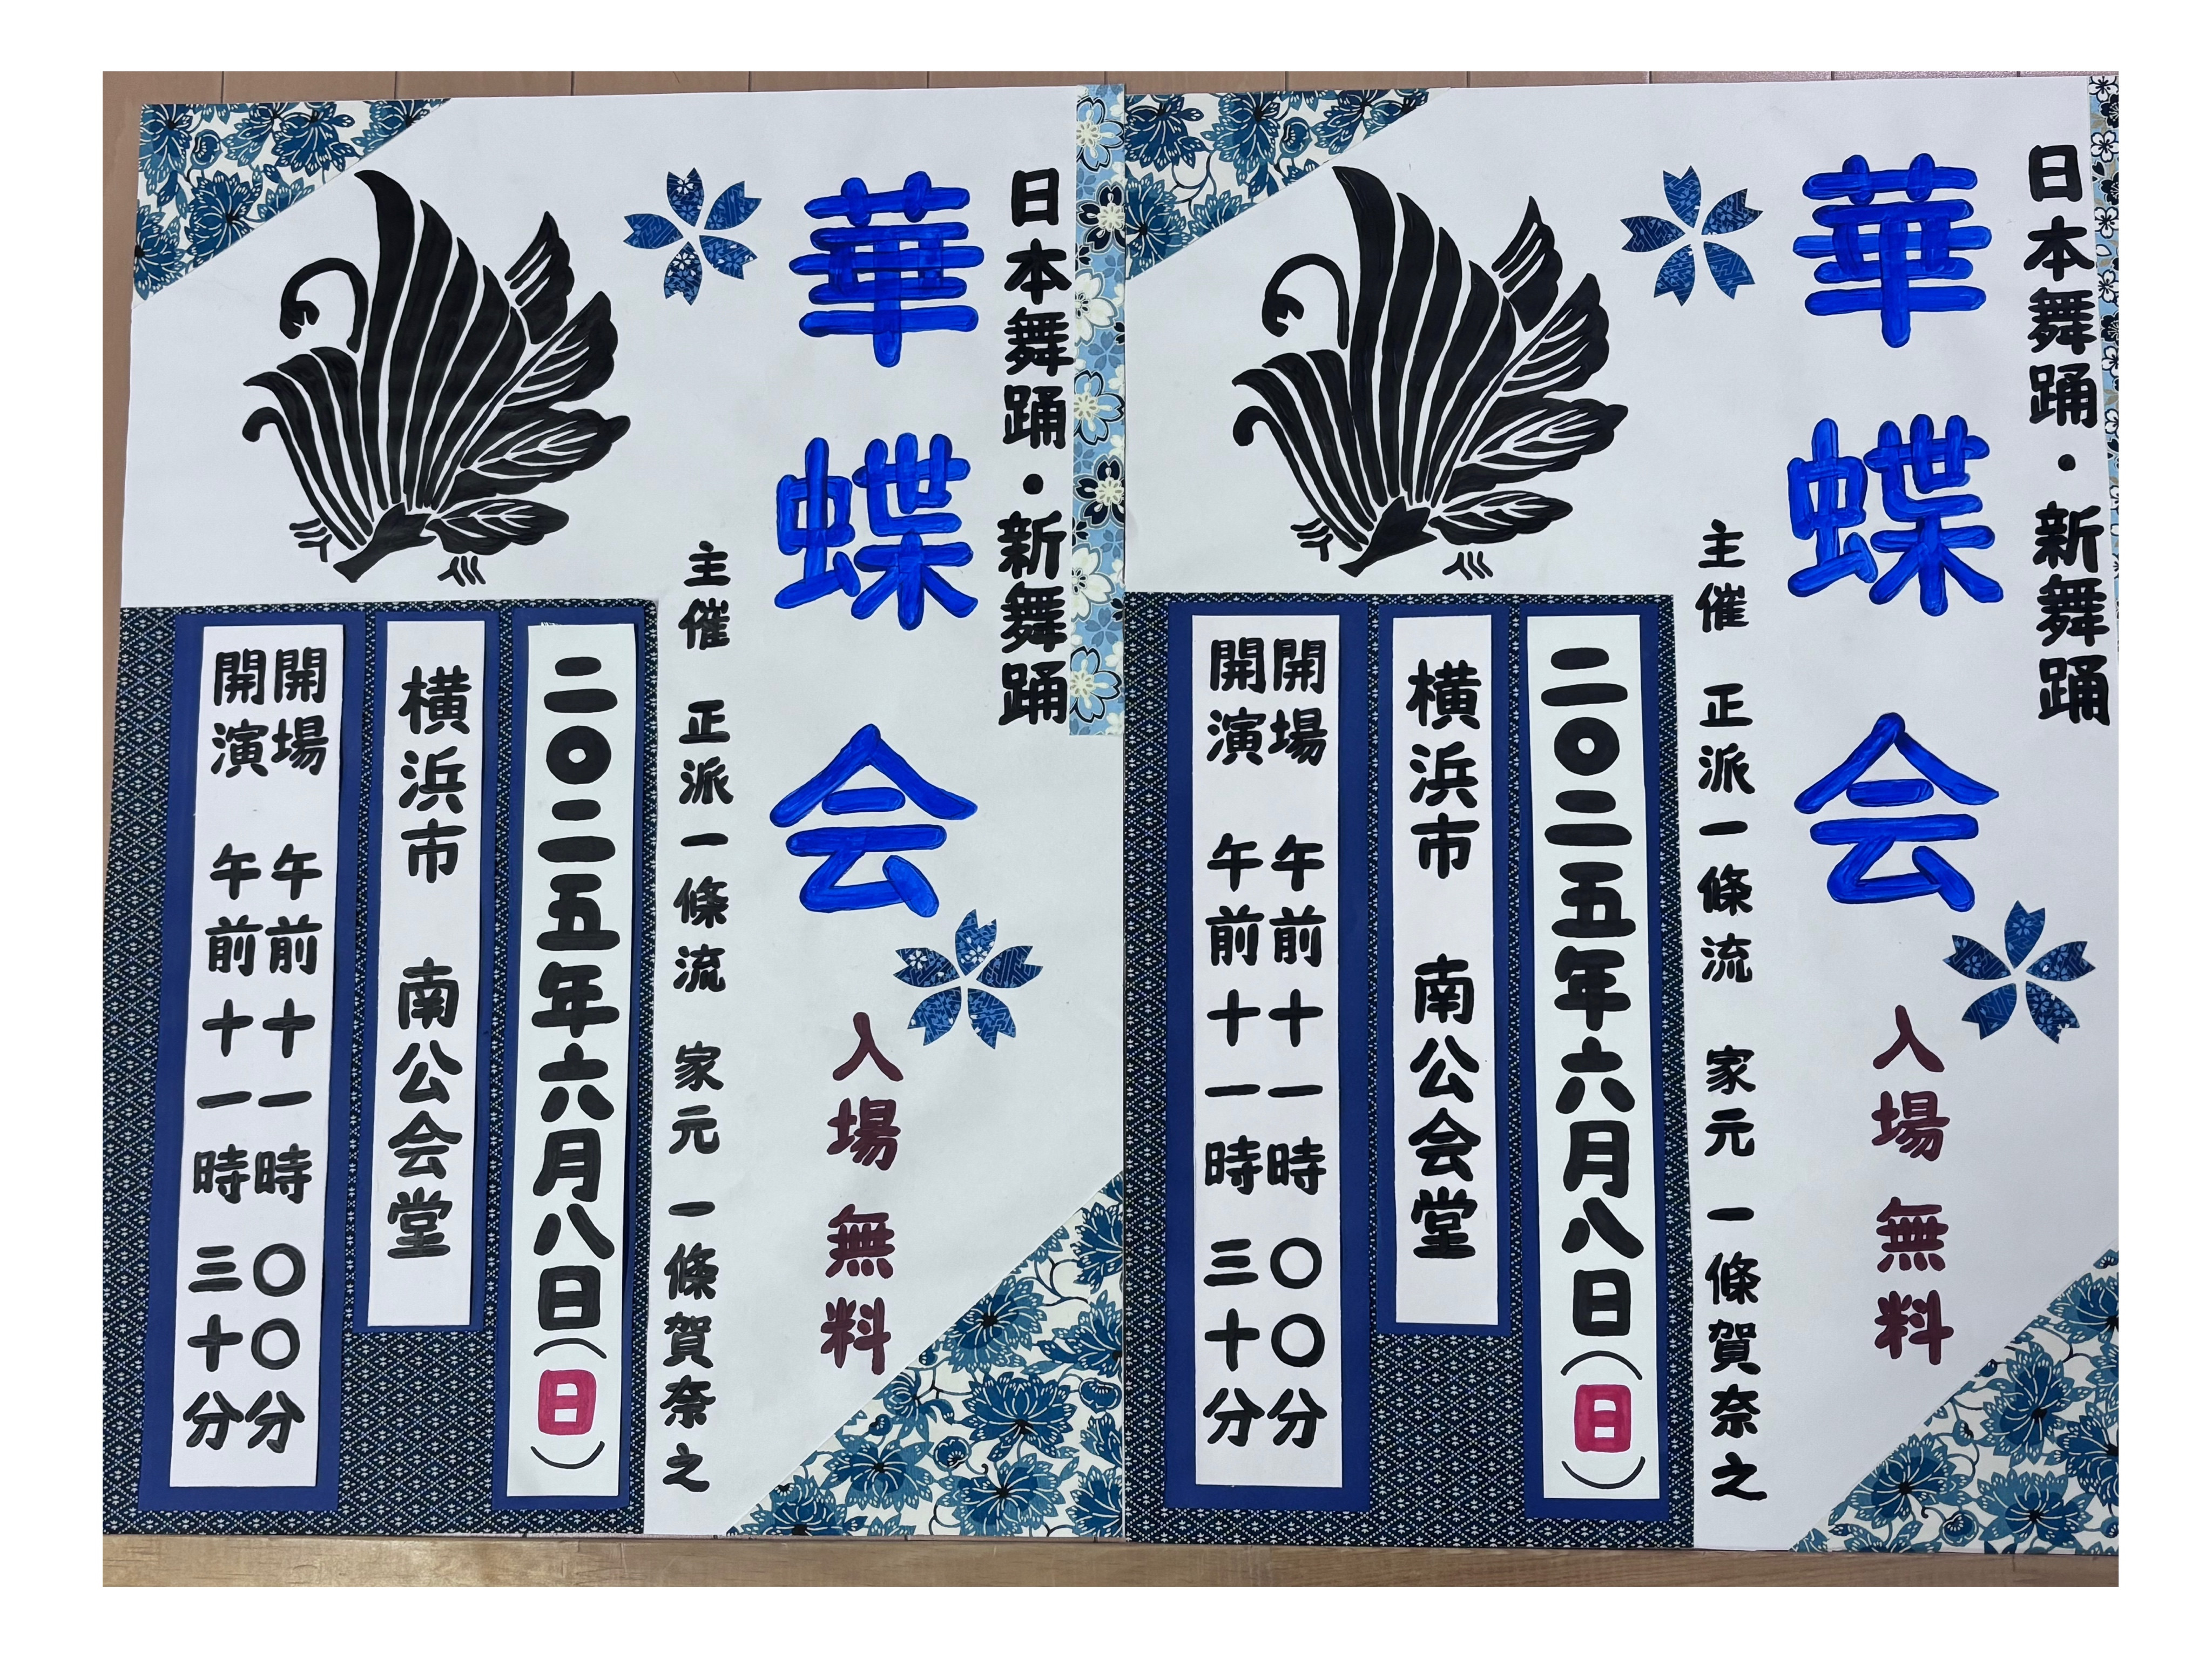 日本舞踊・新舞踊
華蝶会
入場無料
主催 正派一條流 家元 一條賀奈之
二〇二五年六月八日(日)
横浜市 南公会堂
開場 午前十一時〇〇分
開演 午前十一時三十分
日本舞踊・新舞踊
華蝶会
入場無料
主催 正派一條流 家元 一條賀奈之
二〇二五年六月八日(日)
横浜市 南公会堂
開場 午前十一時〇〇分
開演 午前十一時三十分